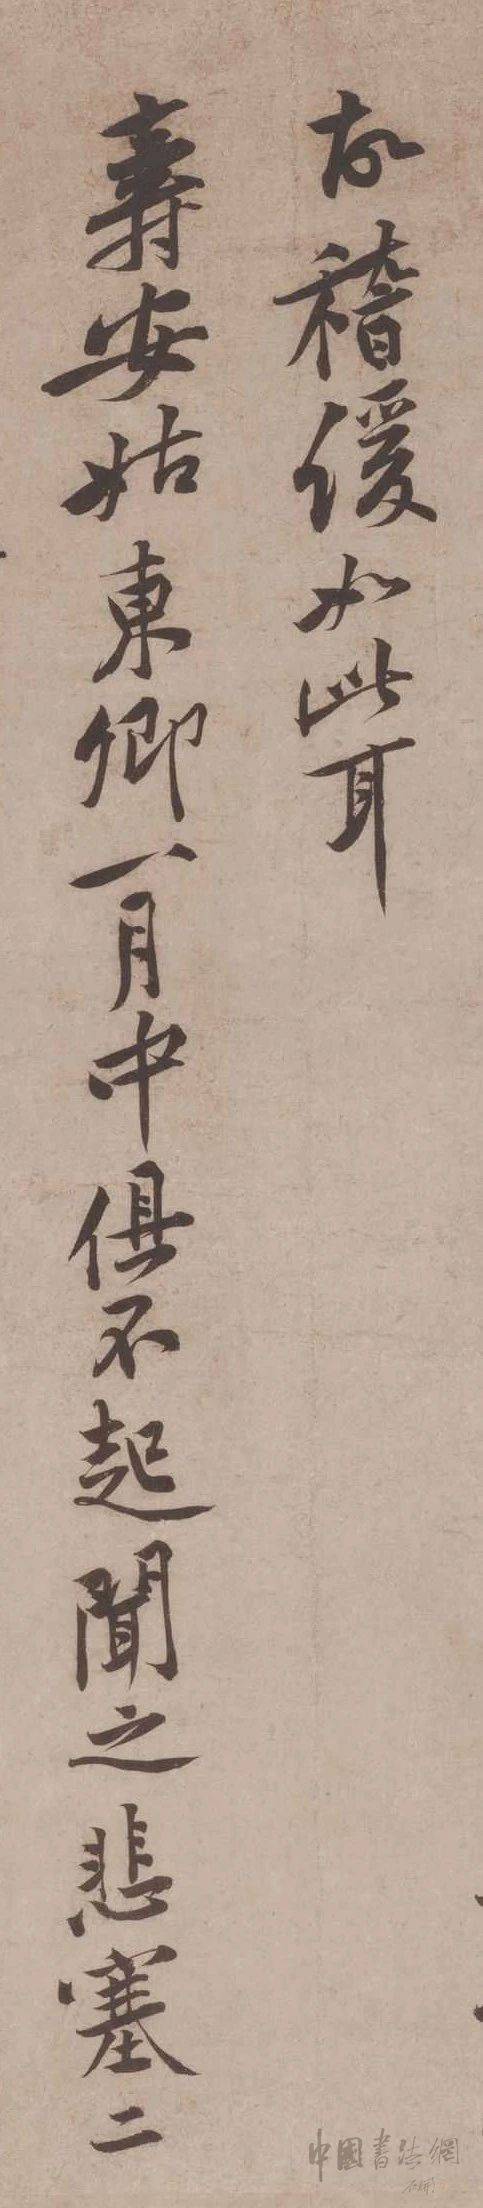 故稽緩如此耳
壽安姑東卿一月中俱不起聞之悲塞二
中國書法網